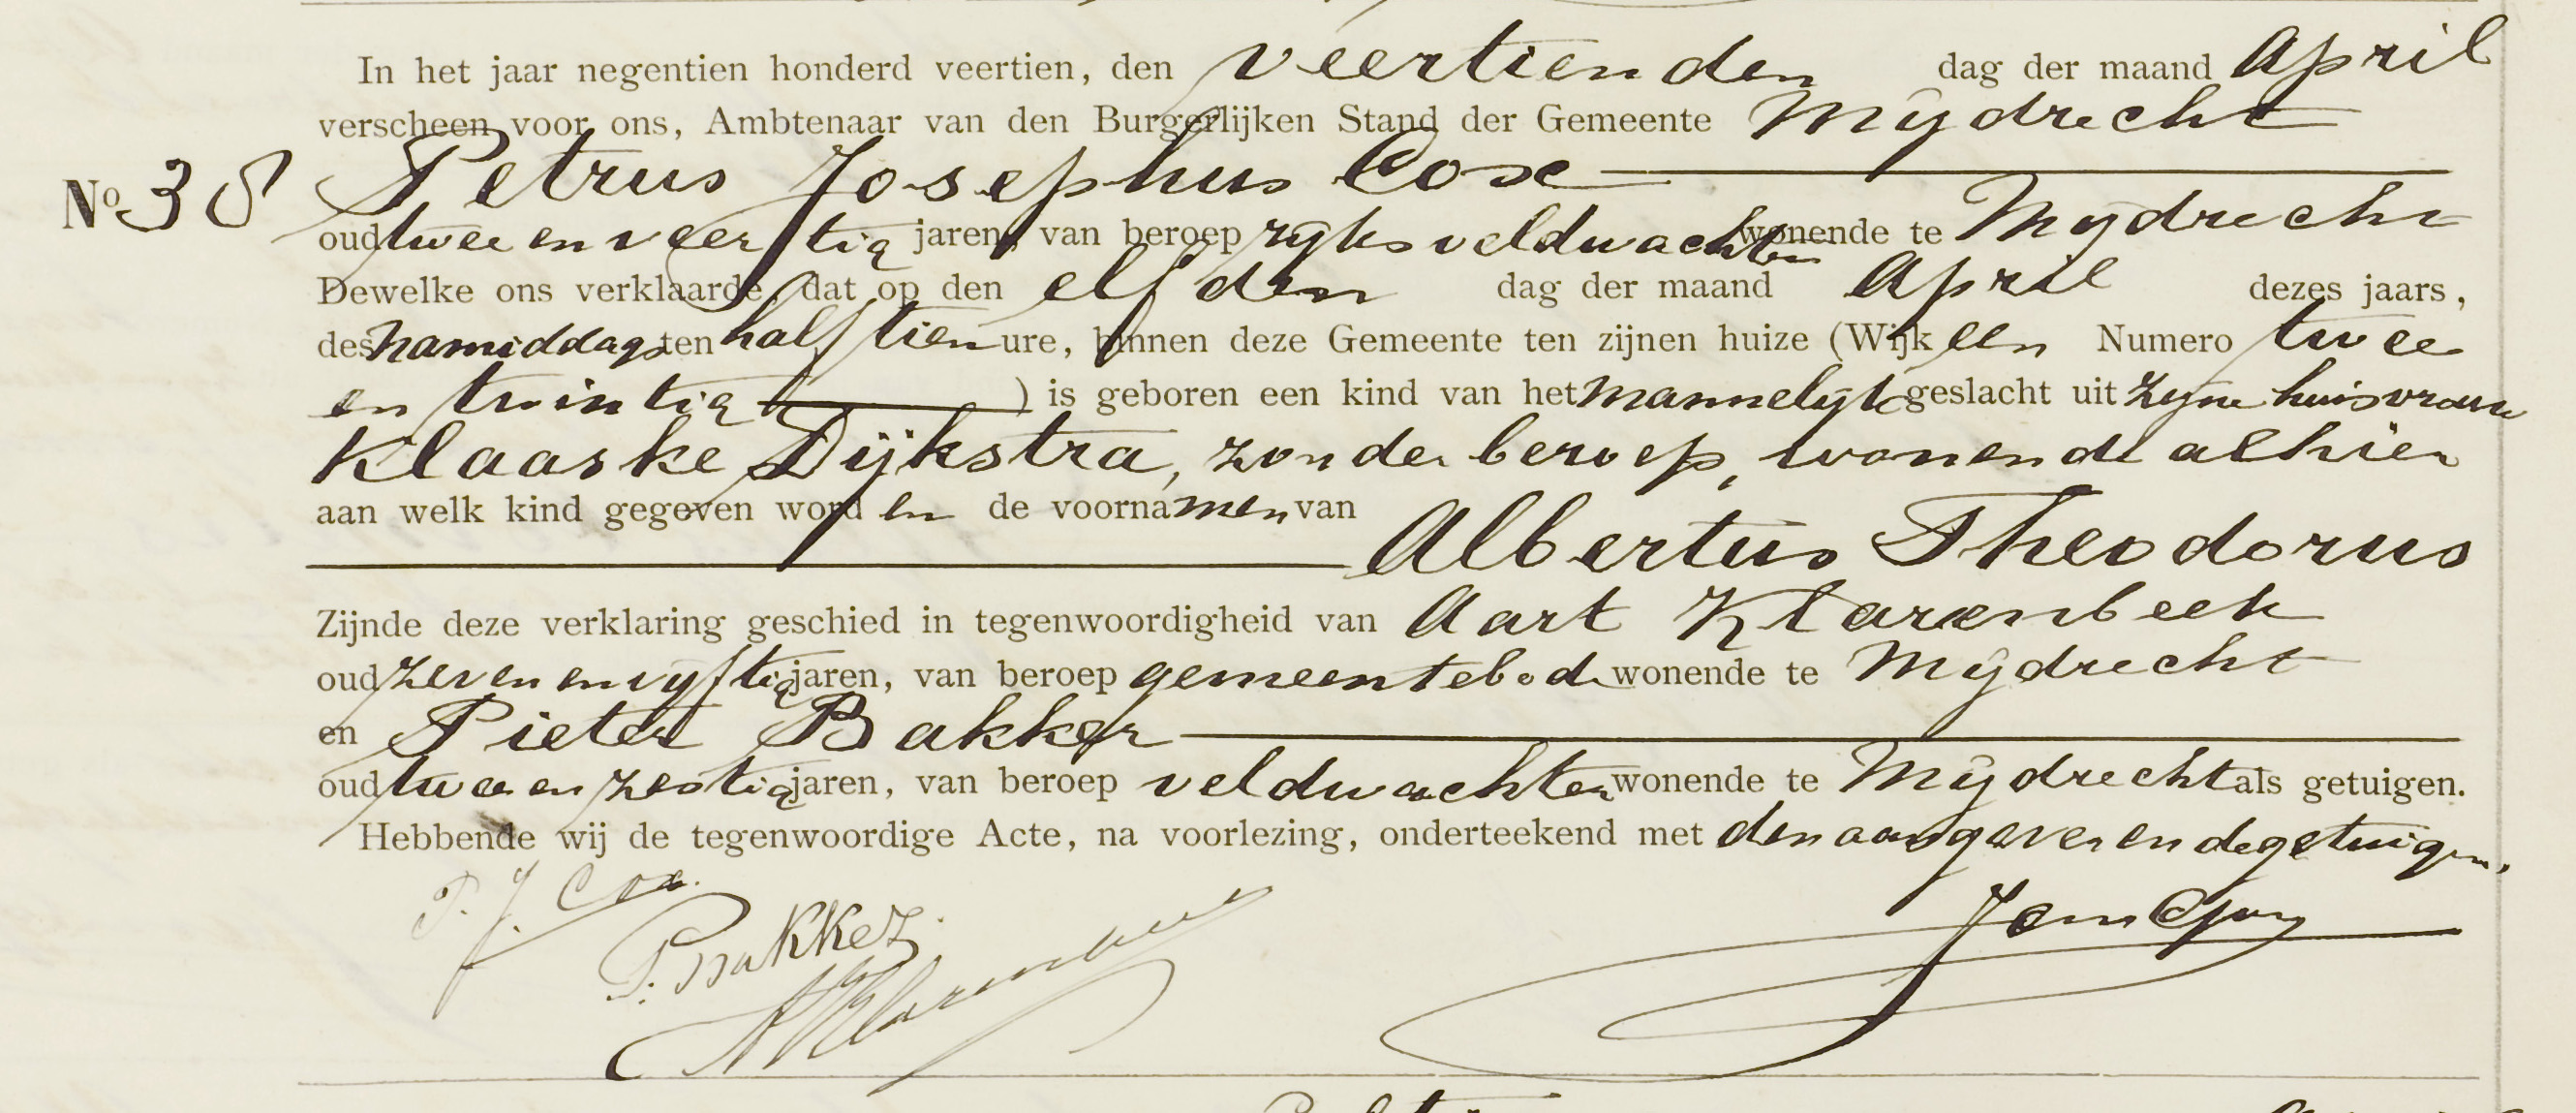 In het jaar negentien honderd veertien, den veertienden dag der maand April
verscheen voor ons, Ambtenaar van den Burgerlijken Stand der Gemeente Mijdrecht
No 38 Petrus Josephus Cox
oud twee en veertig jaren, van beroep rijksveldwachter wonende te Mijdrecht
Dewelke ons verklaarde, dat op den elfden dag der maand April dezes jaars,
des namiddags ten half tien ure, binnen deze Gemeente ten zijnen huize (Wijk een Numero twee
en twintig ) is geboren een kind van het mannelijk geslacht uit zijne huisvrouw
Klaaske Dijkstra, zonder beroep, wonende alhier
aan welk kind gegeven worden de voornamen van
Albertus Theodorus
Zijnde deze verklaring geschied in tegenwoordigheid van Aart Klarenbeek
oud zeven en vijftig jaren, van beroep gemeentebode wonende te Mijdrecht
en Pieter Bakker
oud twee en zestig jaren, van beroep veldwachter wonende te Mijdrecht als getuigen.
Hebbende wij de tegenwoordige Acte, na voorlezing, onderteekend met den aangever en de getuigen.
P. J. Cox.
P. Bakker.
A Klarenbeek